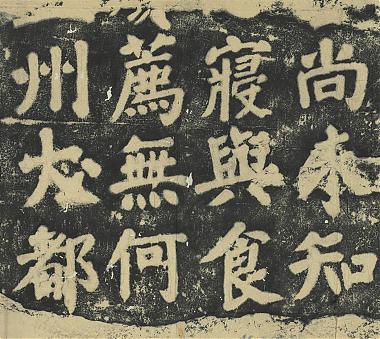 尚未知
寢與食
薦無何
州大都